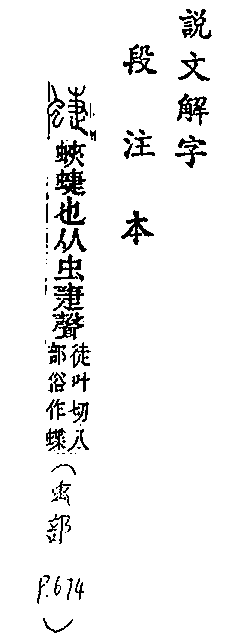 說文解字
段注本
蛺蜨也从虫疌聲徒叶切八
部俗作蝶
(虫部
P.674)